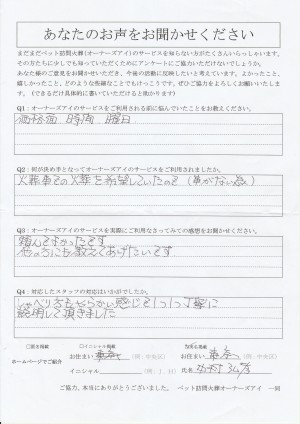 あなたのお声をお聞かせください
まだまだペット訪問火葬(オーナーズアイ)のサービスを知らない方がたくさんいらっしゃいます。
その方たちに少しでも知っていただくためにアンケートにご協力いただけないでしょうか。
あなた様のご意見をお聞かせいただき、今後の活動に反映したいと考えています。よかったこと、
嬉しかったこと、どのような些細なことでもけっこうです。ぜひご協力をよろしくお願いいたしま
す。(できるだけ具体的に書いていただけると助かります)
Q1:オーナーズアイのサービスをご利用される前に悩んでいたことをお教えください。
価格面、時間、曜日
Q2:何が決め手となってオーナーズアイのサービスをご利用されましたか。
火葬車での火葬を希望していたので(車がない為)
Q3:オーナーズアイのサービスを実際にご利用なさってみての感想をお聞かせください。
頼んでよかったです
他の方にも教えてあげたいです
Q4:対応したスタッフの対応はいかがでしたか。
しゃべり方もやわらかい感じで1つ1つ丁寧に
説明して頂きました
□匿名掲載 ○イニシャル掲載 実名掲載
ホームページでご紹介
お住まい (例:中央区) お住まい (例:中央区)
イニシャル (例:J.H) 氏名
ご協力、本当にありがとうございました。 ペット訪問火葬オーナーズアイ 一同